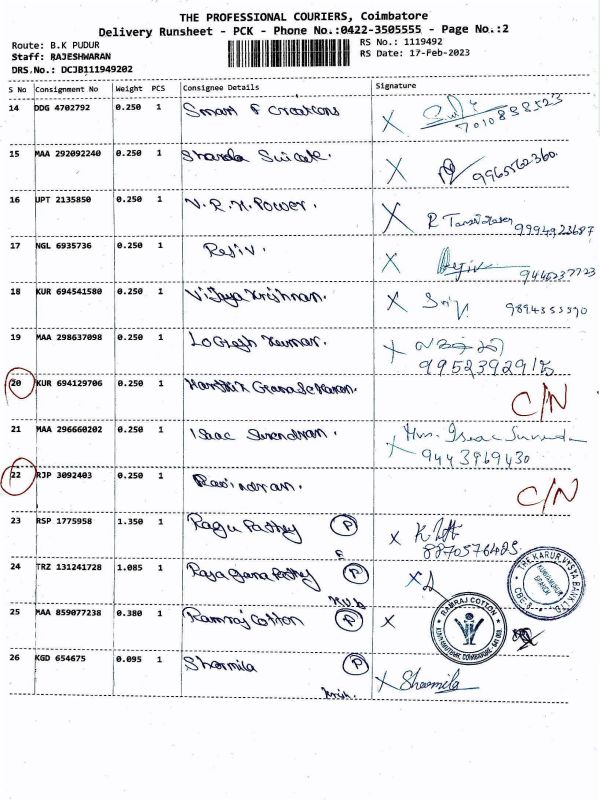 THE PROFESSIONAL COURIERS, Coimbatore
Delivery Runsheet - PCK - Phone No.:0422-3505555 - Page No.:2
Route: B.K PUDUR
RS No.: 1119492
Staff: RAJESHWARAN
RS Date: 17-Feb-2023
DRS.No.: DCJB111949202
S No Consignment No Weight PCS Consignee Details Signature
14 DDG 4702792 0.250 1 Smart F Creations X 7010838523
15 MAA 292092240 0.250 1 Sharda X 9965562360.
16 UPT 2135850 0.250 1 V.R.H.Power. X R 9994923687
17 NGL 6935736 0.250 1 Rejiv. X Rejiv 9446237723
18 KUR 694541580 0.250 1 Vijaya Krishnan. X
19 MAA 298637098 0.250 1 Logesh Kumar. X
20 KUR 694129706 0.250 1 C/N
21 MAA 296660202 0.250 1 Isaac Surendran. X Isaac 9443969430
22 RJP 3092403 0.250 1 Ravindran. C/N
23 RSP 1775958 1.350 1 Ragu Pathy P X 8870576425
24 TRZ 131241728 1.085 1 Raja Gana Pathy P X
THE KARUR VYSYA BANK LTD.
25 MAA 859077238 0.380 1 Ramraj Cotton P X
RAMRAJ COTTON
26 KGD 654675 0.095 1 Sharmila P X Sharmila